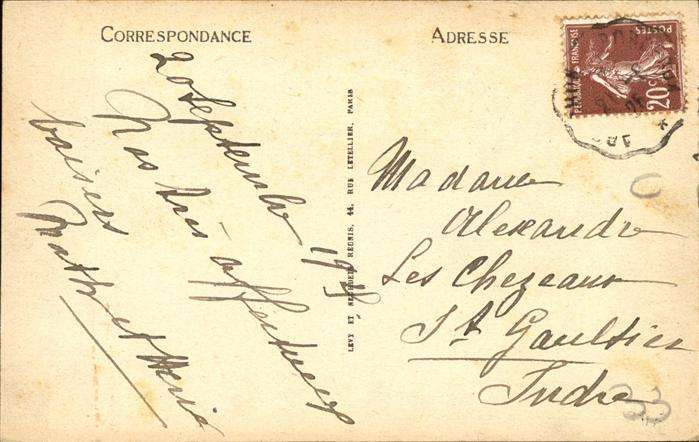 CORRESPONDANCE
ADRESSE
20 Septembre
Nos très affectueux
baisers
LEVY ET NEURDEIN REUNIS, 44, RUE LETELLIER, PARIS
POSTES
20c
Madame
Alexandre
Les Chezeaux
St Gaultier
Indre
33